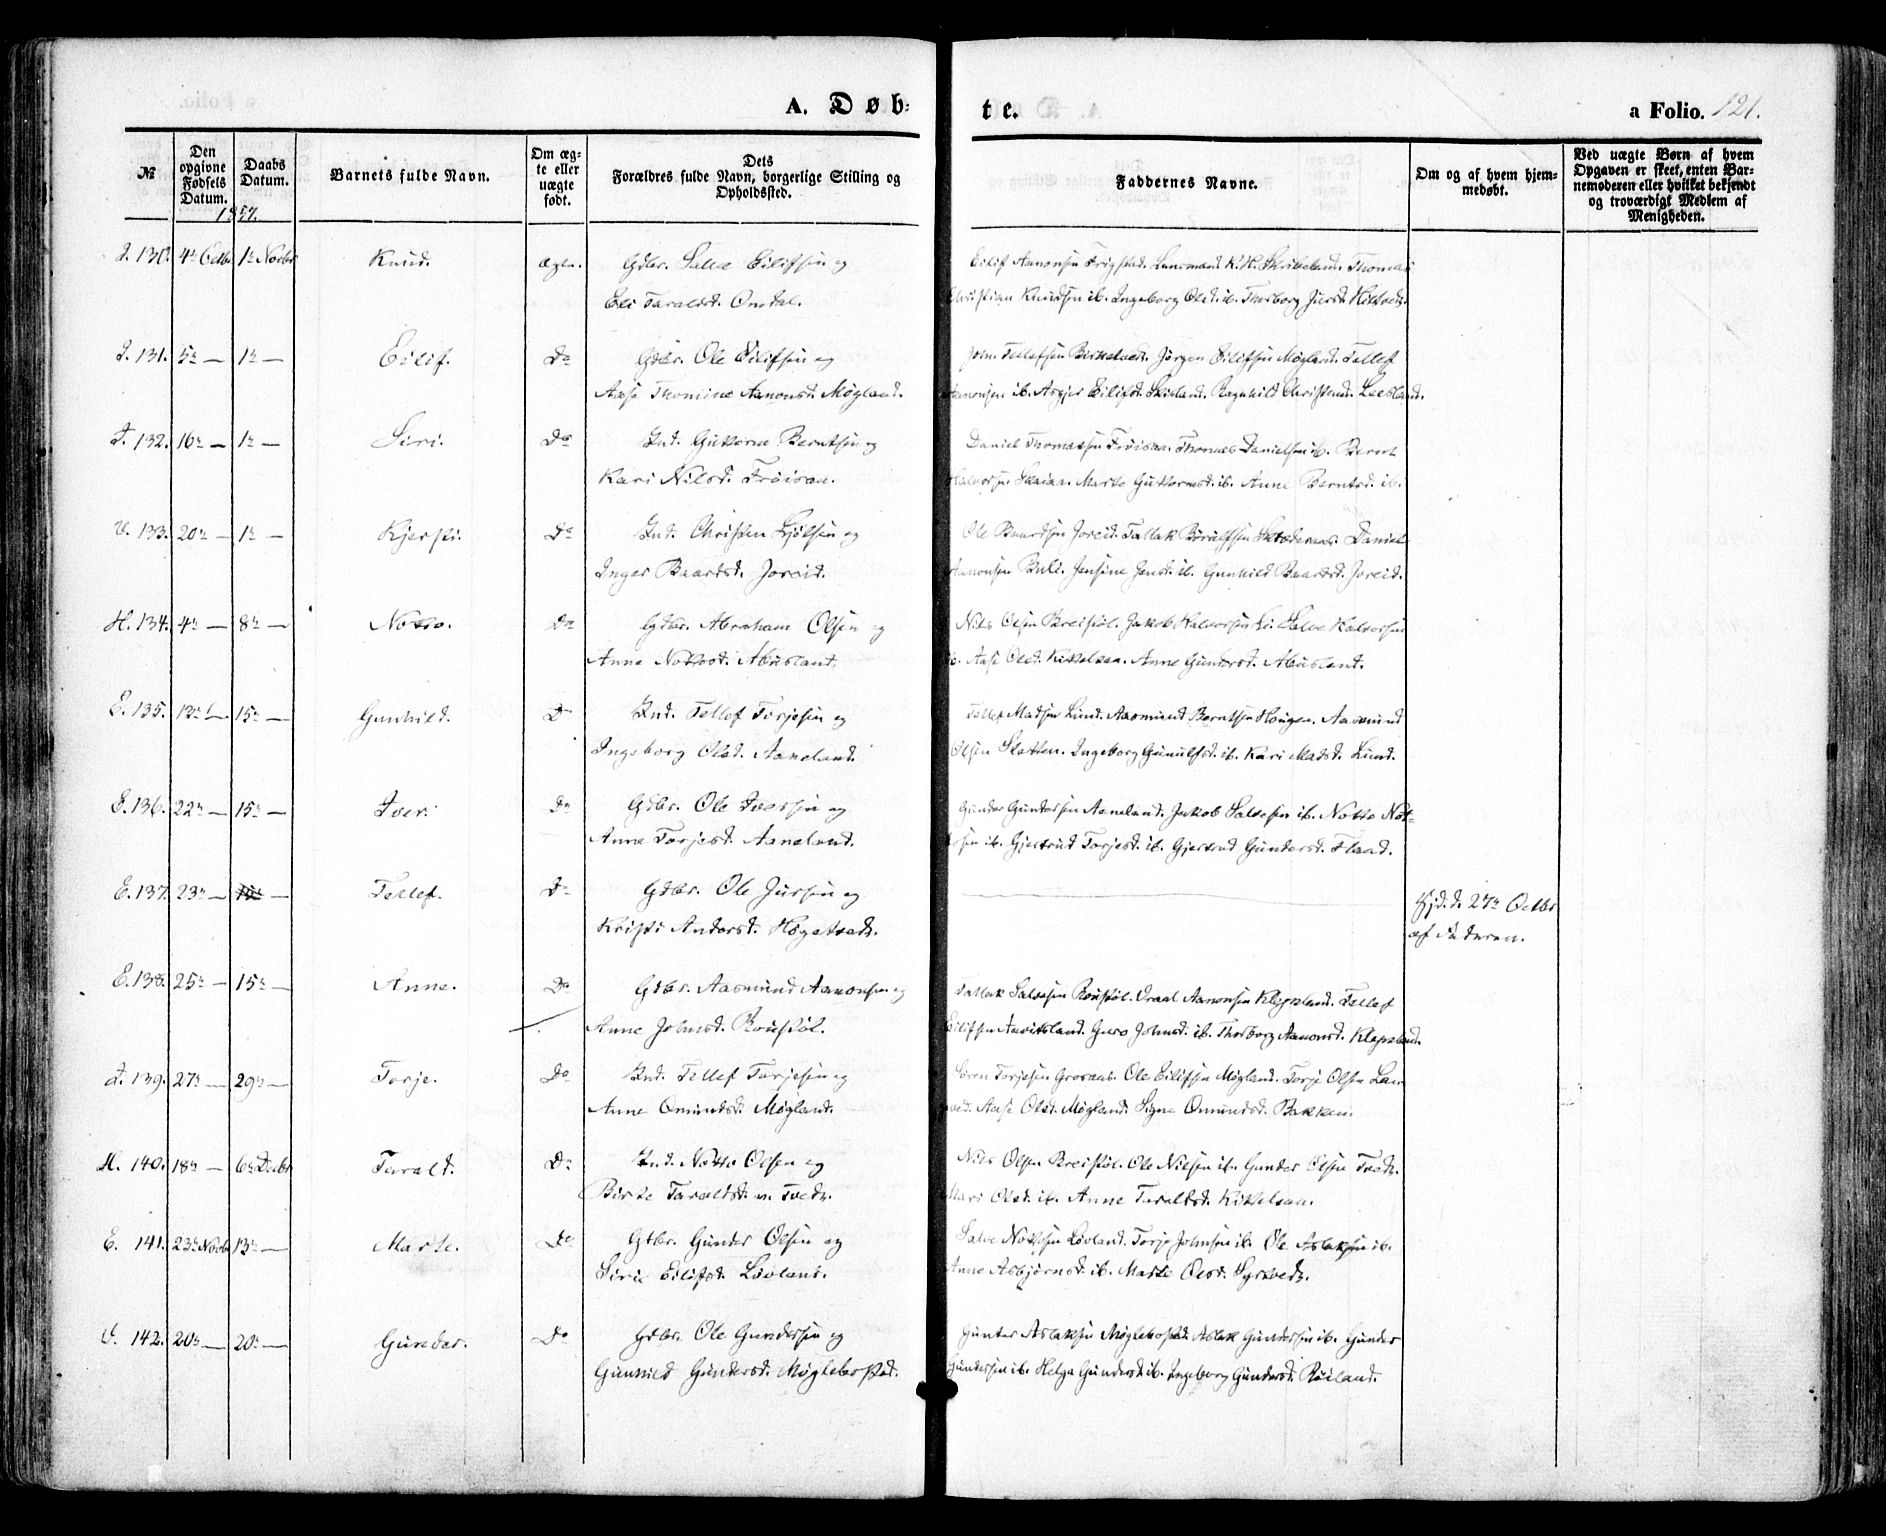 A. Døb-
te.
a Folio. 121.
№
Den opgivne Fødsels Datum.
Daabs Datum.
Barnets fulde Navn.
Om ægte eller uægte født.
Dets Forældres fulde Navn, borgerlige Stilling og Opholdssted.
Faddernes Navne.
Om og af hvem hjemmedøbt.
Ved uægte Børn af hvem Opgaven er skeet, enten Barnemoderen eller hvilket bekjendt og troværdigt Medlem af Menigheden.
1857.
130. 4de Octbr 1ste Novbr Knud. ægte. Gdbr. Salve Eilifsen og
Eli Taraldsd. Omdal.
Eilif Aanonsen Frigstad. Lensmand K. K. Skribeland. Thomas
Christian Knudsen ib. Ingeborg Olsd. ib. Thorborg Jursd. Hiltvedt.
131. 5te — 1ste — Eilif. Do Gdbr. Ole Eilifsen og
Aase Thomine Aanonsd. Møgland.
John Tellefsen Birketvedt. Jörgen Eilifsen Møgland. Tellef
Aanonsen ib. Asgjer Eilifsd. Skisland. Ragnhild Christensd. Leesland.
132. 16de — 1ste — Siri. Do Ind. Guttorm Berntsen og
Kari Nilsd. Fröisaa.
Daniel Thomassen Fröisaa. Thomas Danielsen ib. Bernt
Halvorsen Skaiaa. Marte Guttormsd. ib. Anne Berntsd. ib.
133. 20de — 1ste — Kjersti. Do Ind. Christen Ljölsen og
Inger Baardsd. Joreid.
Ole Baardsen Joreid. Tallak Böruffsen. Daniel
Aanonsen. Jensine Jensd. ib. Gunhild Baardsd. Joreid.
H. 134. 4de — 8de — Notto. Do Gdbr. Abraham Olsen og
Anne Nottosd. Abusland.
Nils Olsen Breistöl. Jakob Halvorsen Li. Salve Halvorsen
ib. Aase Olsd. Kittelsaa. Anne Gundersd. Abusland.
E. 135. 13de — 15de — Gunhild. Do Ind. Tellef Torjesen og
Ingeborg Olsd. Aaneland.
Tellef Madsen Lund. Aasmund Berntsen Hougen. Aasmund
Olsen Slotten. Ingeborg Gunulfsd. ib. Kari Madsd. Lund.
136. 22de — 15de — Iver. Do Gdbr. Ole Iversen og
Anne Torjesd. Aaneland.
Gunder Gundersen Aaneland. Jakob Salvesen ib. Notto Not-
tosen ib. Gjertrud Torjesd. ib. Gjertrud Gundersd. Flaad.
E. 137. 23de — — Tellef. Do Gdbr. Ole Jursen og
Kristi Andersd. Høgetvedt.
Hjd. d. 27de Octbr
af Faderen.
E. 138. 25de — 15de — Anne. Do Gdbr. Aasmund Aanonsen og
Anne Johnsd. Roustöl.
Tallak Salvesen Roustöl. Aanon Klepsland. Tellef
Eilifsen Auvitsland. Guro Johnsd. ib. Thorborg Aanonsd. Klepsland.
139. 27de — 29de — Torje. Do Ind. Tellef Torjesen og
Anne Omundsd. Møgland.
Sören Torjesen Grosaas. Ole Eilifsen Møgland. Torje Olsen
Aase Olsd. Møgland. Signe Omundsd. Bakken.
H. 140. 18de — 6te Decbr Tarald. Do Ind. Notto Olsen og
Birte Taraldsd. n. Tvedt.
Nils Olsen Breistöl. Ole Nilsen ib. Gunder Olsen Tvedt.
Mari Olsd. ib. Anne Taraldsd. Kittelsaa.
E. 141. 23de Novbr 13de — Marte. Do Gdbr. Gunder Olsen og
Sirie Eilifsd. Lövland.
Salve Nottosen Lövland. Torje Johnsen ib. Ole Aslaksen ib.
Anne Asbjörnsd. ib. Marte Olsd. Syrtvedt.
142. 20de — 20de — Gunder. Do Gdbr. Ole Gundersen og
Gunhild Gundersd. Møglebostad.
Gunder Aslaksen Møglebostad. Aslak Gundersen ib. Gunder
Gundersen ib. Helga Gundersd. ib. Ingeborg Gundersd. Röiland.